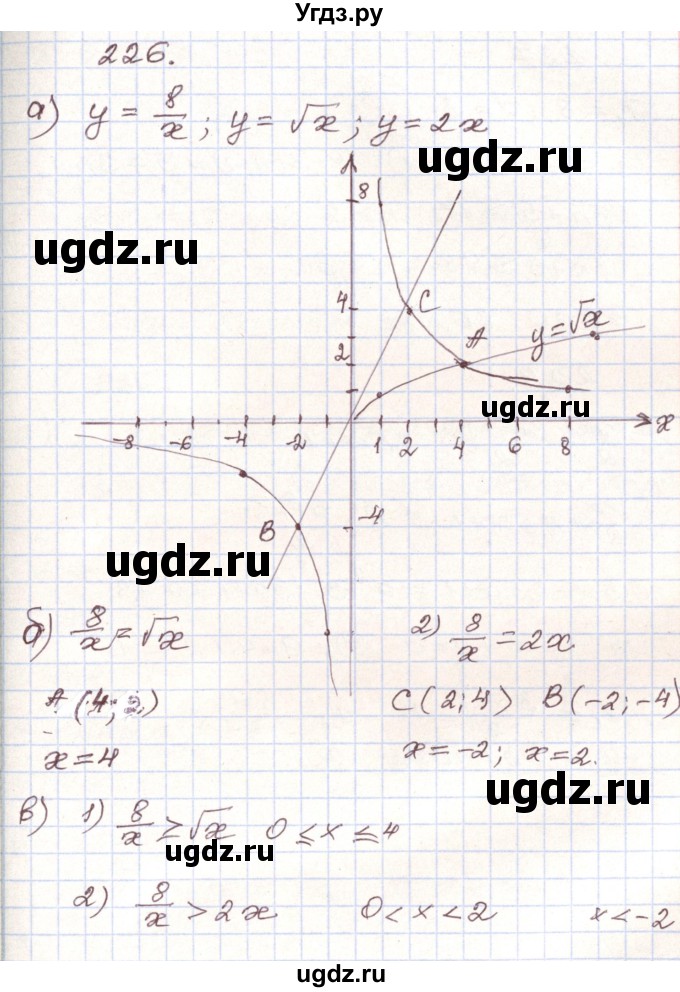 Угдз.ру
226.
а) y = 8/x ; y = √x ; y = 2x
ugdz.ru
8
ugdz.ru
4
C
A
y=√x
2
ugdz.ru
-8 -6 -4 -2 1 2 4 6 8 x
-4
B
ugdz.ru
б) 8/x = √x
2) 8/x = 2x
A (4; 2)
C (2; 4) B (-2; -4)
x = 4
x = -2; x = 2.
ugdz.ru
в) 1) 8/x ≥ √x 0 ≤ x ≤ 4
ugdz.ru
2) 8/x > 2x 0 < x < 2 x < -2
ugdz.ru